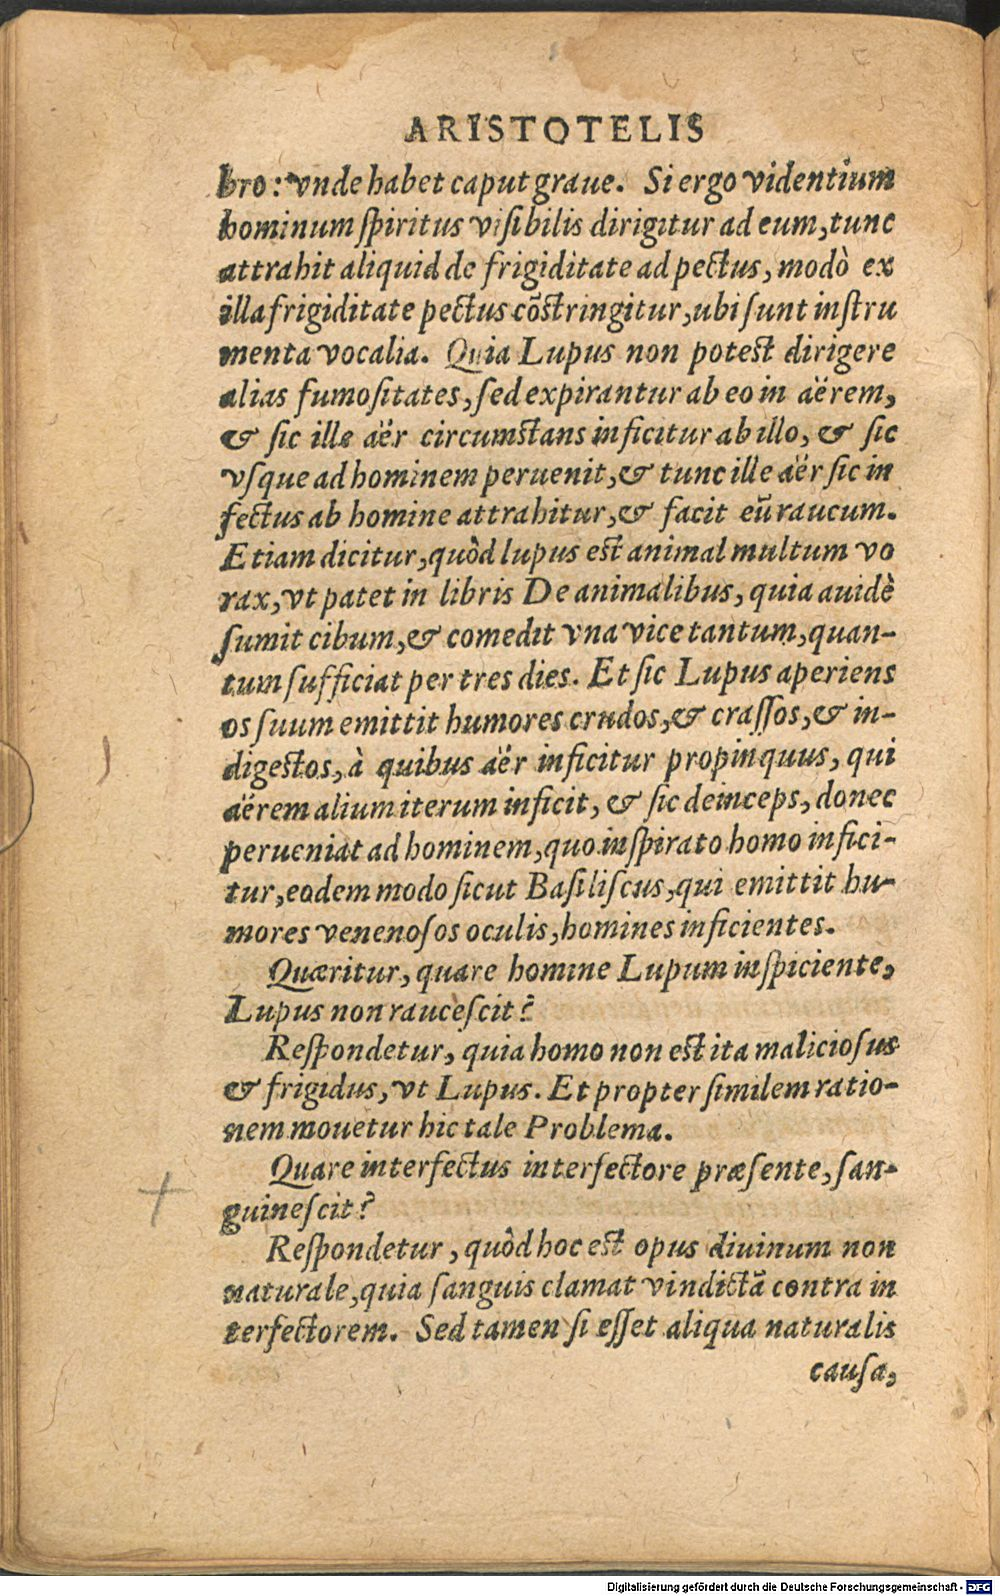 ARISTOTELIS
bro: vnde habet caput graue. Si ergo videntium
hominum ſpiritus viſibilis dirigitur ad eum, tunc
attrahit aliquid de frigiditate ad pectus, modò ex
illa frigiditate pectus cõſtringitur, ubi ſunt inſtru
menta vocalia. Quia Lupus non poteſt dirigere
alias fumoſitates, ſed expirantur ab eo in aërem,
& ſic ille aër circumſtans inficitur ab illo, & ſic
vſque ad hominem peruenit, & tunc ille aër ſic in
fectus ab homine attrahitur, & facit eũ raucum.
Etiam dicitur, quòd lupus eſt animal multum vo
rax, vt patet in libris De animalibus, quia auidè
ſumit cibum, & comedit vna vice tantum, quan-
tum ſufficiat per tres dies. Et ſic Lupus aperiens
os ſuum emittit humores crudos, & craſſos, & in-
digeſtos, à quibus aër inficitur propinquus, qui
aërem alium iterum inficit, & ſic deinceps, donec
perueniat ad hominem, quo inſpirato homo infici-
tur, eodem modo ſicut Baſiliſcus, qui emittit hu-
mores venenoſos oculis, homines inficientes.
Quæritur, quare homine Lupum inſpiciente,
Lupus non rauceſcit?
Reſpondetur, quia homo non eſt ita malicioſus
& frigidus, vt Lupus. Et propter ſimilem ratio-
nem mouetur hic tale Problema.
Quare interfectus interfectore præſente, ſan-
guineſcit?
Reſpondetur, quòd hoc eſt opus diuinum non
naturale, quia ſanguis clamat vindictã contra in
terfectorem. Sed tamen ſi eſſet aliqua naturalis
cauſa,
Digitalisierung gefördert durch die Deutsche Forschungsgemeinschaft - DFG